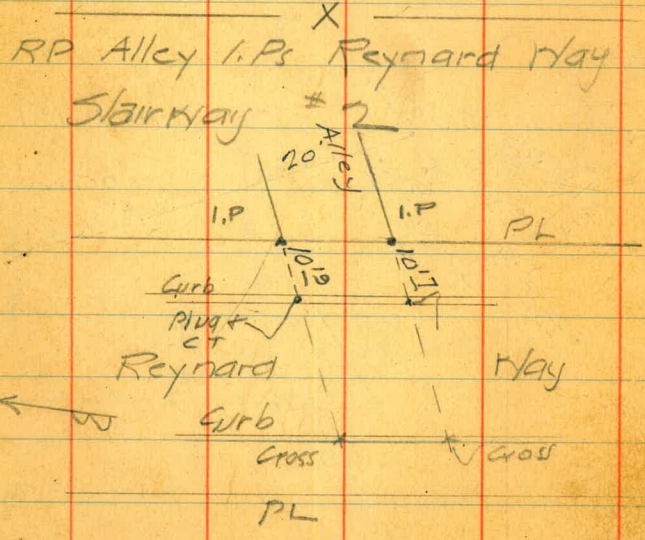 X
RP Alley I.Ps Reynard Way
Stairway #2
20' Alley
I.P I.P
PL
10.19 10.17
Curb
Plug &
CT
Reynard Way
Curb
Cross Cross
PL